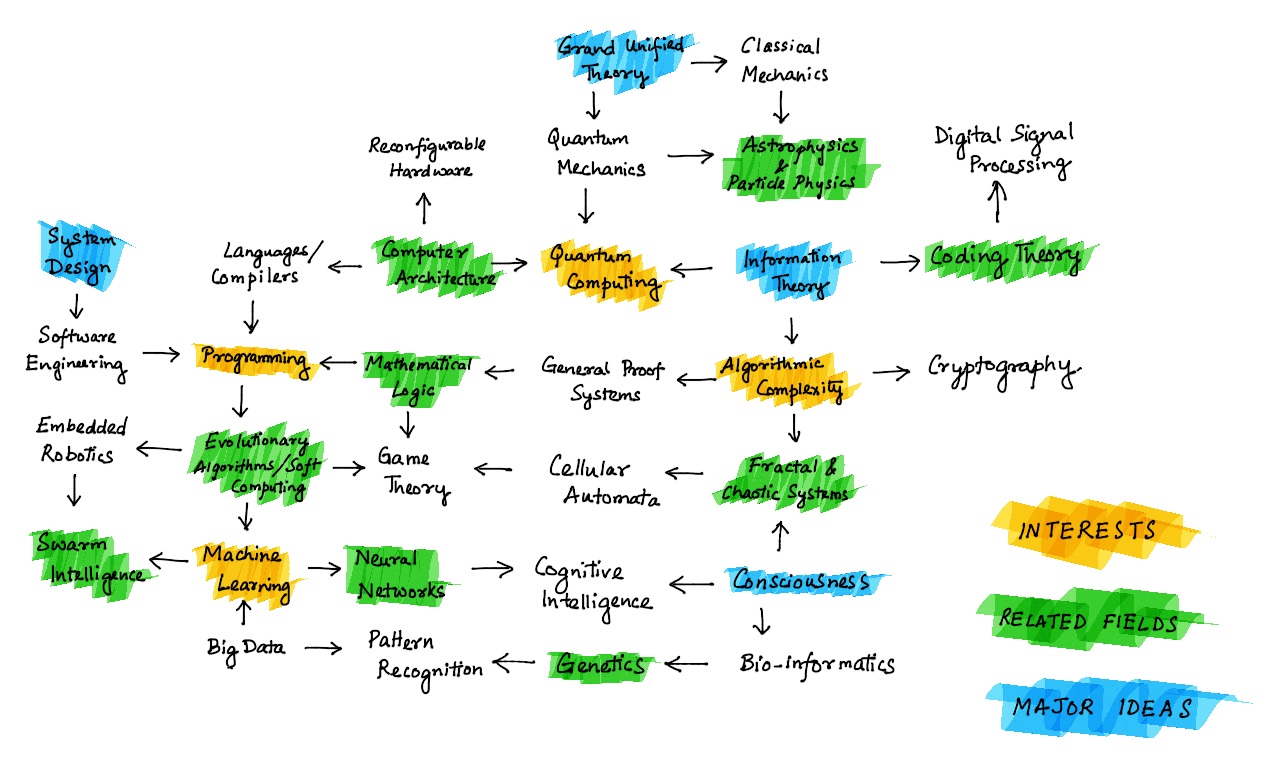 Grand Unified
Theory
Classical
Mechanics
Reconfigurable
Hardware
Quantum
Mechanics
Astrophysics
&
Particle Physics
Digital Signal
Processing
System
Design
Languages/
Compilers
Computer
Architecture
Quantum
Computing
Information
Theory
Coding Theory
Software
Engineering
Programming
Mathematical
Logic
General Proof
Systems
Algorithmic
Complexity
Cryptography
Embedded
Robotics
Evolutionary
Algorithms/Soft
Computing
Game
Theory
Cellular
Automata
Fractal &
Chaotic Systems
Swarm
Intelligence
Machine
Learning
Neural
Networks
Cognitive
Intelligence
Consciousness
Big Data
Pattern
Recognition
Genetics
Bio-informatics
INTERESTS
RELATED FIELDS
MAJOR IDEAS